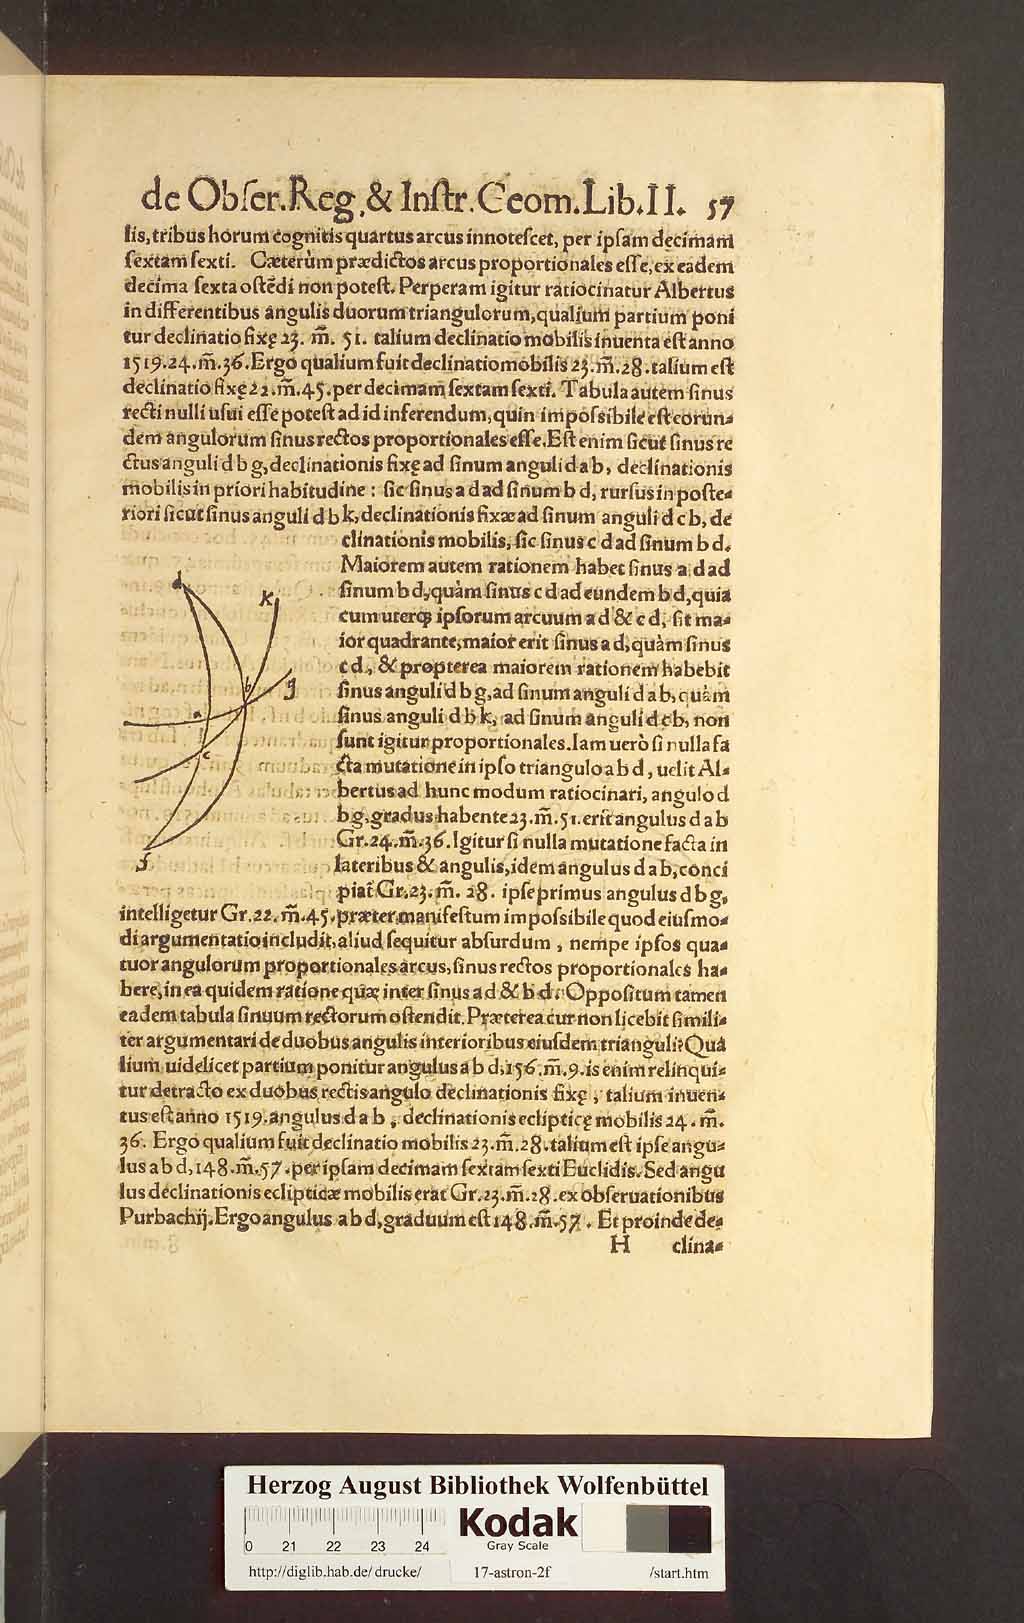 de Obſer.Reg.& Inſtr.Geom.Lib.II. 57
lis,tribus horum cognitis quartus arcus innoteſcet, per ipſam decimam
ſextam ſexti. Cæterùm prædictos arcus proportionales eſſe, ex eadem
decima ſexta oſtẽdi non poteſt. Perperam igitur ratiocinatur Albertus
in differentibus angulis duorum triangulorum, qualium partium poni
tur declinatio fixę 23. m̃. 51. talium declinatio mobilis inuenta eſt anno
1519.24.m̃.36.Ergo qualium fuit declinatio mobilis 23.m̃.28.talium eſt
declinatio fixę 22.m̃.45.per decimam ſextam ſexti. Tabula autem ſinus
recti nulli uſui eſſe poteſt ad id inferendum, quin impoſsibile eſt eorun-
dem angulorum ſinus rectos proportionales eſſe. Eſt enim ſicut ſinus re
ctus anguli d b g, declinationis fixę ad ſinum anguli d a b, declinationis
mobilis in priori habitudine : ſic ſinus a d ad ſinum b d, rurſus in poſte-
riori ſicut ſinus anguli d b k, declinationis fixæ ad ſinum anguli d c b, de
clinationis mobilis, ſic ſinus c d ad ſinum b d.
Maiorem autem rationem habet ſinus a d ad
ſinum b d, quàm ſinus c d ad eundem b d, quia
cum uterq; ipſorum arcuum a d & c d, ſit ma-
ior quadrante, maior erit ſinus a d, quàm ſinus
c d, & propterea maiorem rationem habebit
ſinus anguli d b g, ad ſinum anguli d a b, quàm
ſinus anguli d b k, ad ſinum anguli d c b, non
ſunt igitur proportionales. Iam uerò ſi nulla fa
cta mutatione in ipſo triangulo a b d, uelit Al-
bertus ad hunc modum ratiocinari, angulo d
b g, gradus habente 23.m̃.51.erit angulus d a b
Gr.24.m̃.36.Igitur ſi nulla mutatione facta in
lateribus & angulis, idem angulus d a b, conci
piat Gr.23.m̃. 28. ipſe primus angulus d b g,
d
K
b
g
a
c
f
intelligetur Gr.22.m̃.45.præter manifeſtum impoſsibile quod eiuſmo-
di argumentatio includit, aliud ſequitur abſurdum, nempe ipſos qua-
tuor angulorum proportionales arcus, ſinus rectos proportionales ha-
bere, in ea quidem ratione quæ inter ſinus a d & b d. Oppoſitum tamen
eadem tabula ſinuum rectorum oſtendit. Præterea cur non licebit ſimili-
ter argumentari de duobus angulis interioribus eiuſdem trianguli? Qua
lium uidelicet partium ponitur angulus a b d, 156.m̃.9. is enim relinqui-
tur detracto ex duobus rectis angulo declinationis fixę, talium inuen-
tus eſt anno 1519.angulus d a b, declinationis eclipticę mobilis 24.m̃.
36. Ergo qualium fuit declinatio mobilis 23.m̃.28.talium eſt ipſe angu-
lus a b d, 148.m̃.57.per ipſam decimam ſextam ſexti Euclidis. Sed angu
lus declinationis eclipticæ mobilis erat Gr.23.m̃.28.ex obſeruationibus
Purbachij. Ergo angulus a b d, graduum eſt 148.m̃.57. Et proinde de-
H clina-
Herzog August Bibliothek Wolfenbüttel
0 21 22 23 24
Kodak
Gray Scale
http://diglib.hab.de/drucke/ 17-astron-2f /start.htm